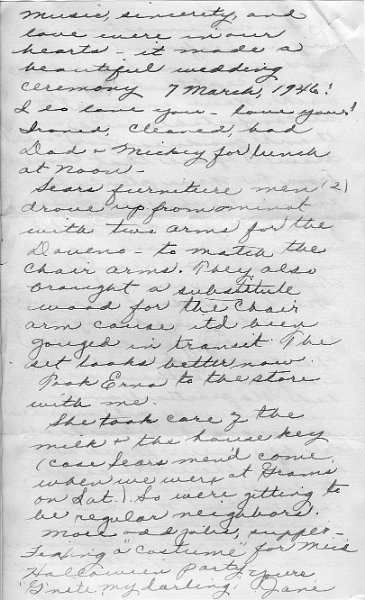 Music, sincerity, and
love were in our
hearts - it made a
beautiful wedding
ceremony 7 March, 1946!
I do love you - love you!
Ironed, cleaned, had
Dad & Mickey for lunch
at Noon -
Sears furniture men (2)
drove up from minot
with two arms for the
Daveno - to match the
chair arms. They also
brought a substitute
wood for the chair
arm cause it'd been
gouged in transit. The
set looks better now.
Took Erna to the store
with me.
She took care of the
milk & the house key
(case Sears men'd come
when we were at Grams
on Sat.) So were gitting to
be regular neighbors.
More odd jobs, supper -
"costume" for
Halloween party
G'nite my darling. Jane